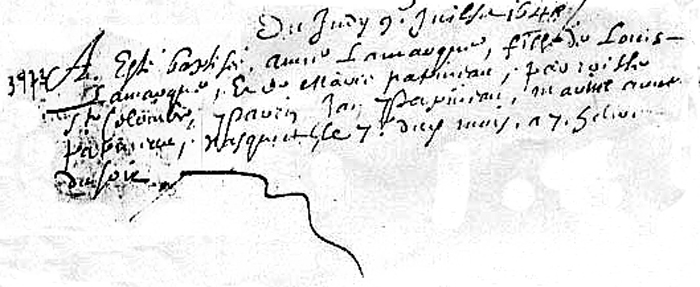 Du Judy 9e Juillet 1648
3973 A Esté baptisée anne Lamarque, fille de Louis
Lamarque, Et de Marie papineau, parroisse
Ste Colombe, Parin Jan Papineau, marine anne
papineau, Nasquit le 7e dud mois, a 7 heures
du soir